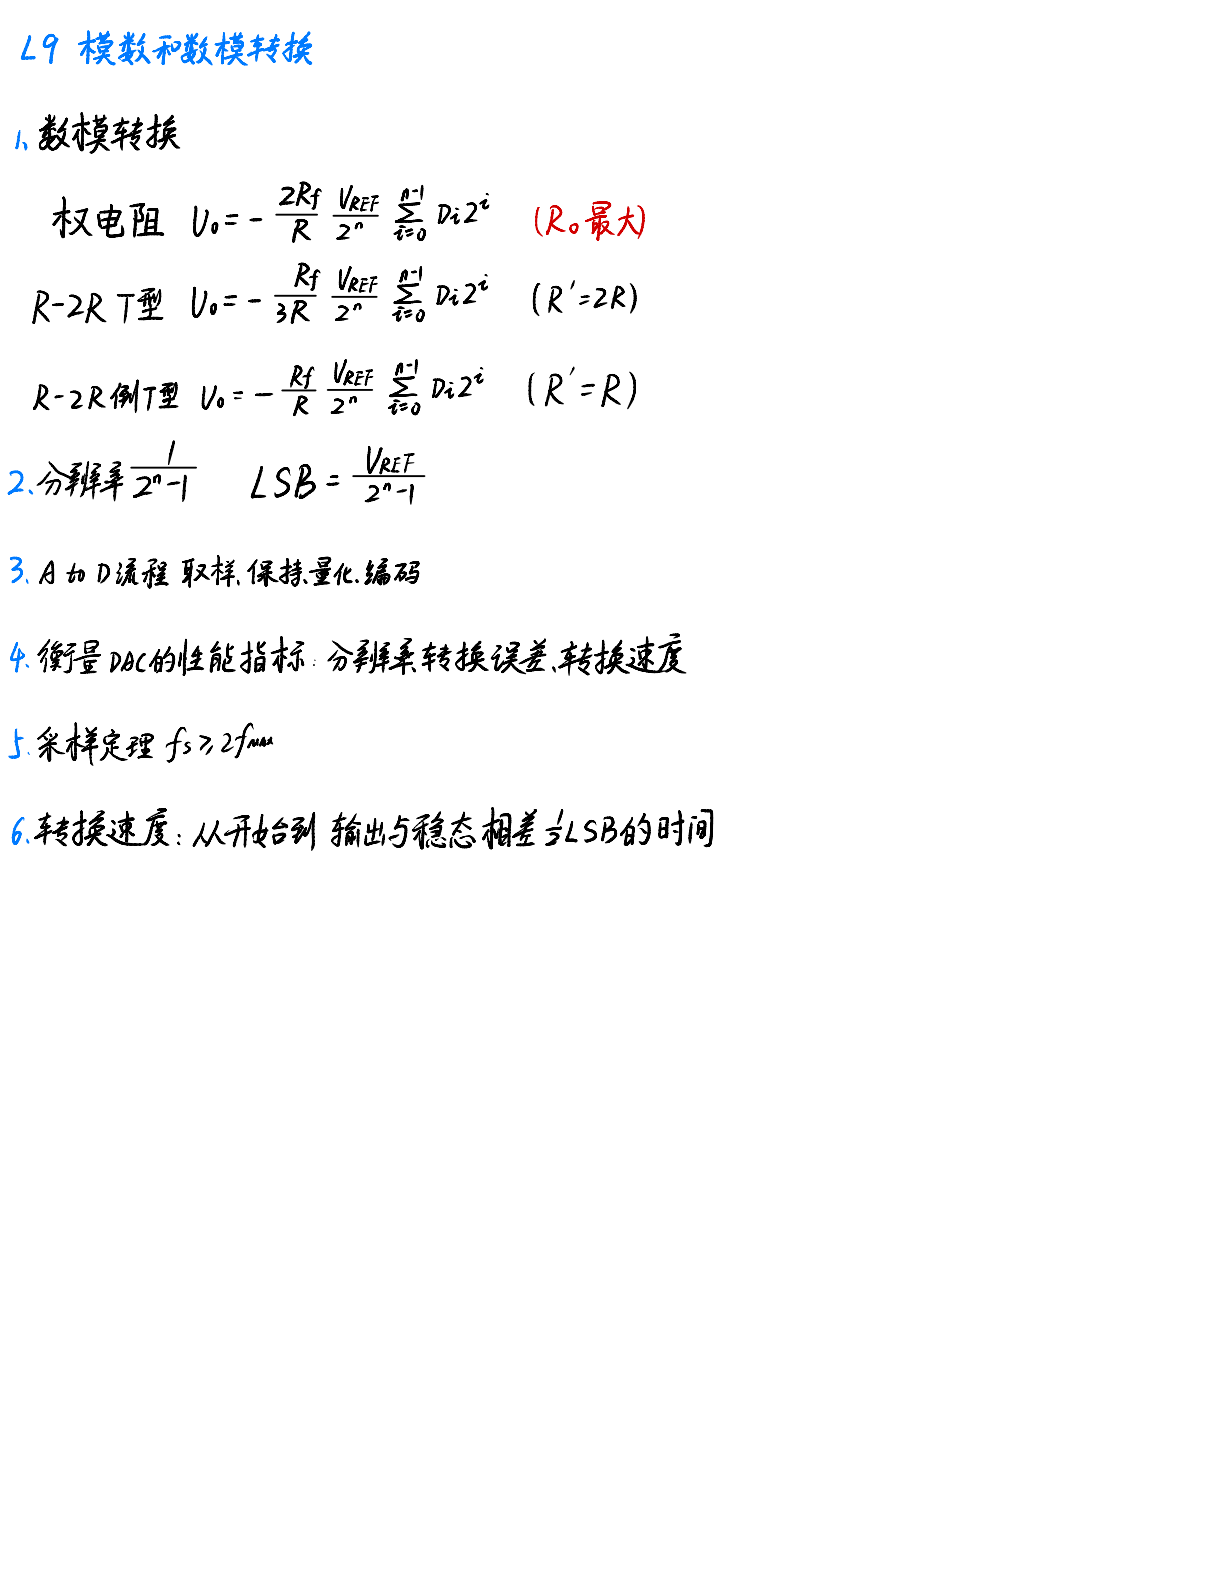 L9 模数和数模转换
1、数模转换
权电阻 U₀ = - 2Rf/R V_REF/2ⁿ ∑_{i=0}^{n-1} Di2ⁱ (R₀最大)
R-2R T型 U₀ = - Rf/3R V_REF/2ⁿ ∑_{i=0}^{n-1} Di2ⁱ (R'=2R)
R-2R倒T型 U₀ = - Rf/R V_REF/2ⁿ ∑_{i=0}^{n-1} Di2ⁱ (R'=R)
2、分辨率 1/(2ⁿ-1) LSB = V_REF/(2ⁿ-1)
3. A to D流程 取样、保持、量化、编码
4. 衡量DAC的性能指标: 分辨率、转换误差、转换速度
5. 采样定理 fs ≥ 2fmax
6. 转换速度: 从开始到输出与稳态相差½LSB的时间